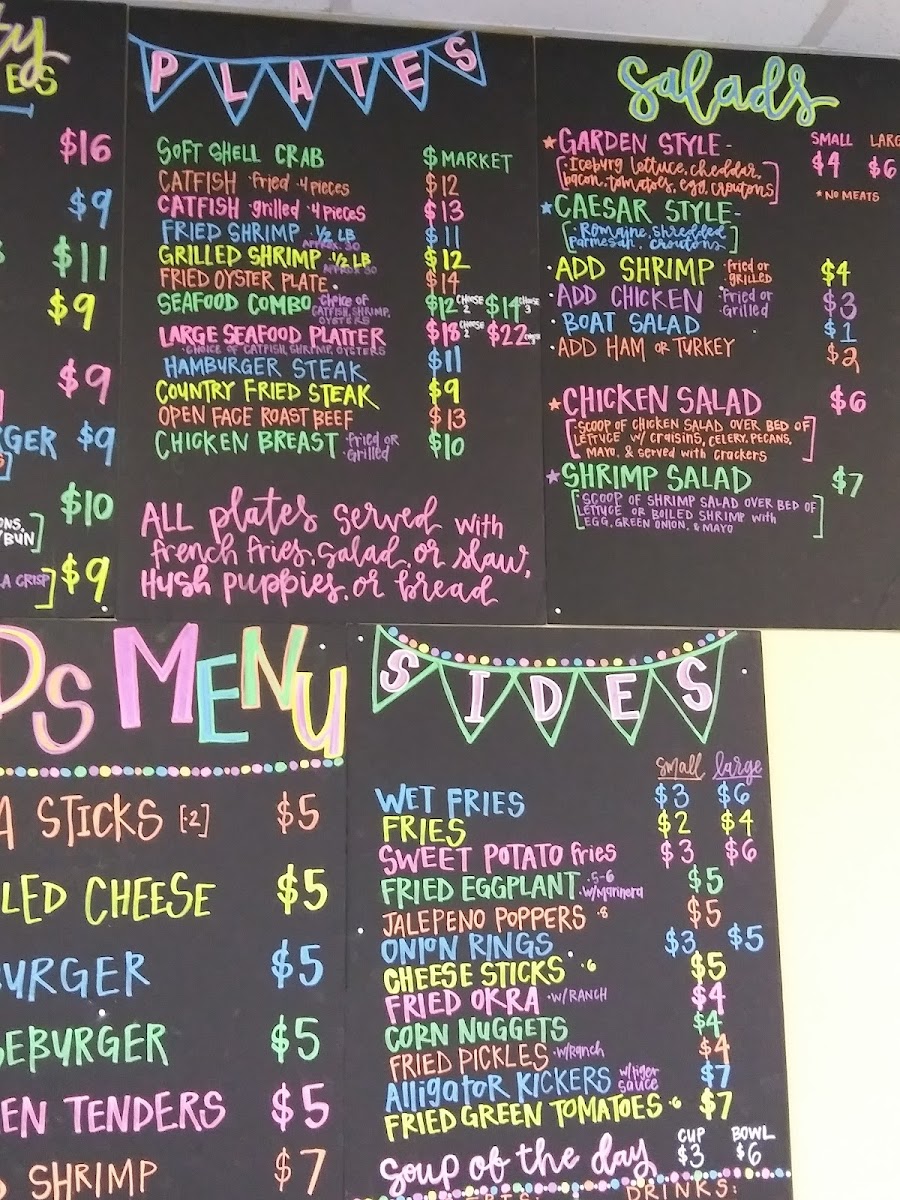 ty
ES
$16
$9
$11
$9
$9
GER $9
$10
ONS,
/BUN
LA CRISP] $9
PLATES
SOFT SHELL CRAB $MARKET
CATFISH ·fried ·4 pieces $12
CATFISH ·grilled ·4 pieces $13
FRIED SHRIMP ·½ LB APPROX. 30 $11
GRILLED SHRIMP ·½ LB APPROX 30 $12
FRIED OYSTER PLATE· $14
SEAFOOD COMBO ·choice of CATFISH, SHRIMP, OYSTERS $12 CHOOSE 2 $14 CHOOSE 3
LARGE SEAFOOD PLATTER $18 CHOOSE 2 $22
·CHOICE OF CATFISH, SHRIMP, OYSTERS
HAMBURGER STEAK $11
COUNTRY FRIED STEAK $9
OPEN FACE ROAST BEEF $13
CHICKEN BREAST ·fried or Grilled $10
ALL plates served with
french fries, salad, or slaw,
Hush puppies, or bread
Salads
SMALL LARG
GARDEN STYLE- $4 $6
[·Iceburg lettuce, cheddar,
bacon, tomatoes, egg, croutons]
*NO MEATS
CAESAR STYLE-
[·Romaine, shredded
parmesan, croutons]
·ADD SHRIMP ·fried or GRILLED $4
·ADD CHICKEN ·Fried or Grilled $3
·BOAT SALAD $1
·ADD HAM or TURKEY $2
CHICKEN SALAD $6
[·SCOOP OF CHICKEN SALAD OVER BED OF
LETTUCE w/ craisins, CELERY, PECANS,
MAYO, & served with crackers]
SHRIMP SALAD $7
[·SCOOP OF SHRIMP SALAD OVER BED OF
LETTUCE OR BOILED SHRIMP with
EGG, GREEN ONION, & MAYO]
DS MENU
A STICKS [·2] $5
LED CHEESE $5
URGER $5
EBURGER $5
EN TENDERS $5
SHRIMP $7
SIDES
small large
WET FRIES $3 $6
FRIES $2 $4
SWEET POTATO fries $3 $6
FRIED EGGPLANT ·5-6 ·w/Marinera $5
JALEPENO POPPERS ·8 $5
ONION RINGS · $3 $5
CHEESE STICKS ·6 $5
FRIED OKRA ·W/RANCH $4
CORN NUGGETS $4
FRIED PICKLES ·w/Ranch $4
Alligator KICKERS w/tiger sauce $7
FRIED GREEN TOMATOES ·6 $7
CUP BOWL
Soup of the day $3 $6
DRINKS: